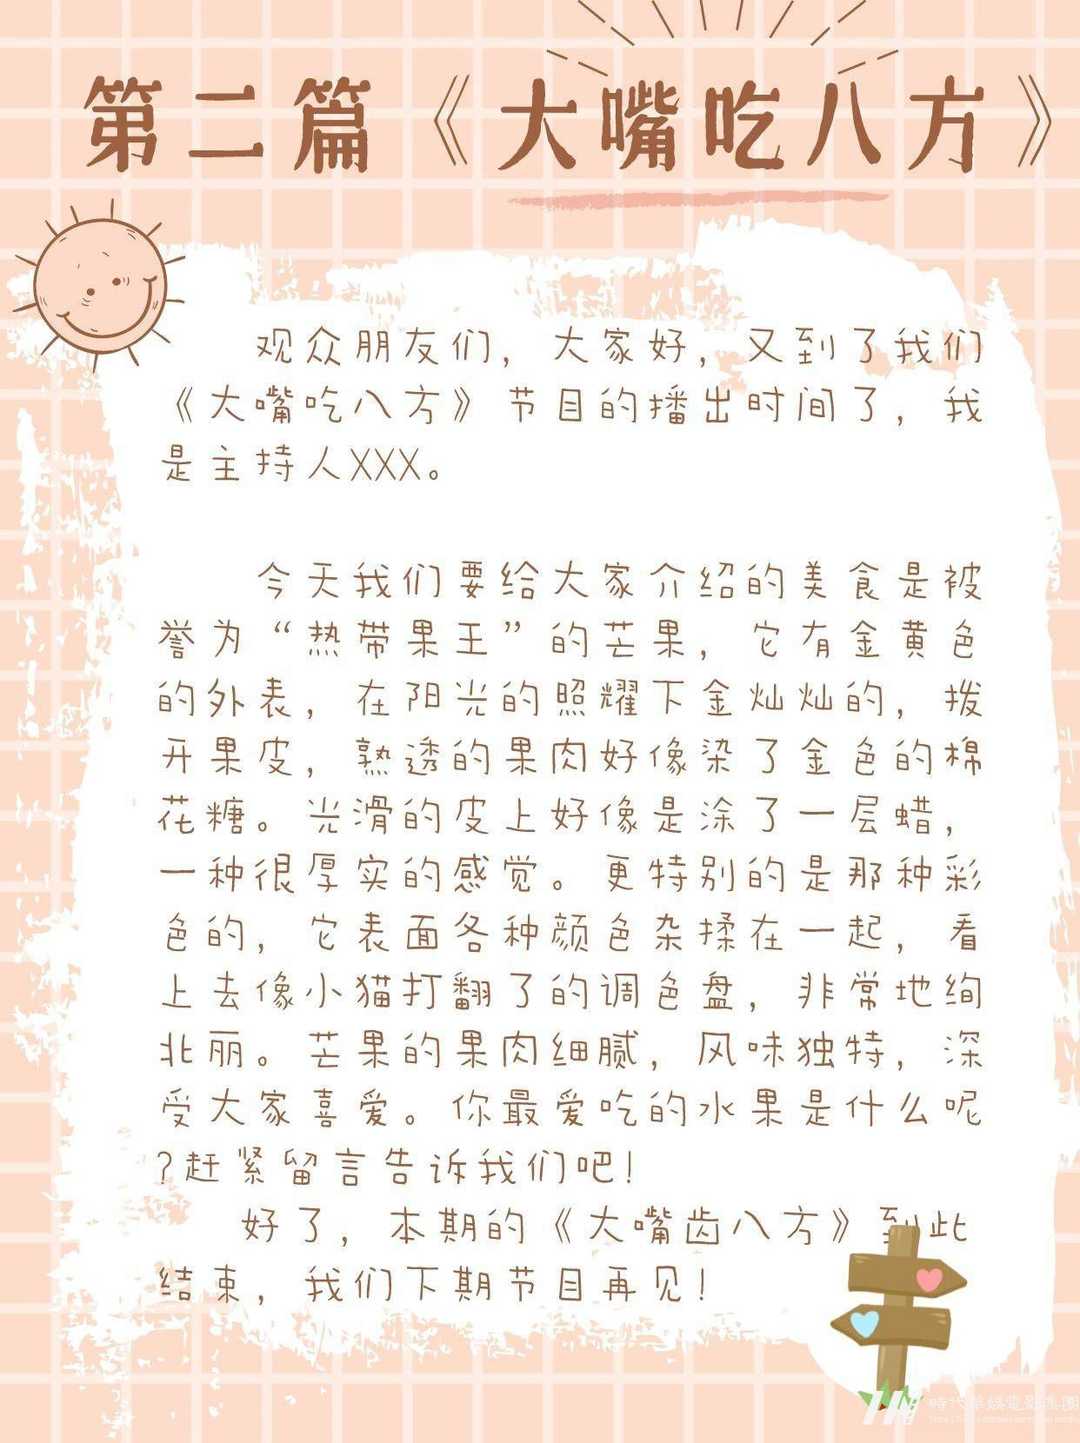 第二篇《大嘴吃八方》
观众朋友们，大家好，又到了我们
《大嘴吃八方》节目的播出时间了，我
是主持人XXX。
今天我们要给大家介绍的美食是被
誉为“热带果王”的芒果，它有金黄色
的外表，在阳光的照耀下金灿灿的，拨
开果皮，熟透的果肉好像染了金色的棉
花糖。光滑的皮上好像是涂了一层蜡，
一种很厚实的感觉。更特别的是那种彩
色的，它表面各种颜色杂揉在一起，看
上去像小猫打翻了的调色盘，非常地绚
北丽。芒果的果肉细腻，风味独特，深
受大家喜爱。你最爱吃的水果是什么呢
?赶紧留言告诉我们吧!
好了，本期的《大嘴齿八方》到此
结束，我们下期节目再见!
時代華嬌電影集團